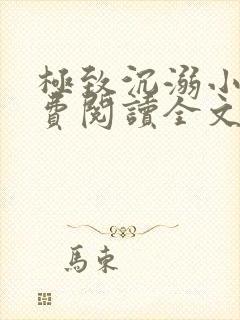 極致沉溺小
費閱讀全文
馬束